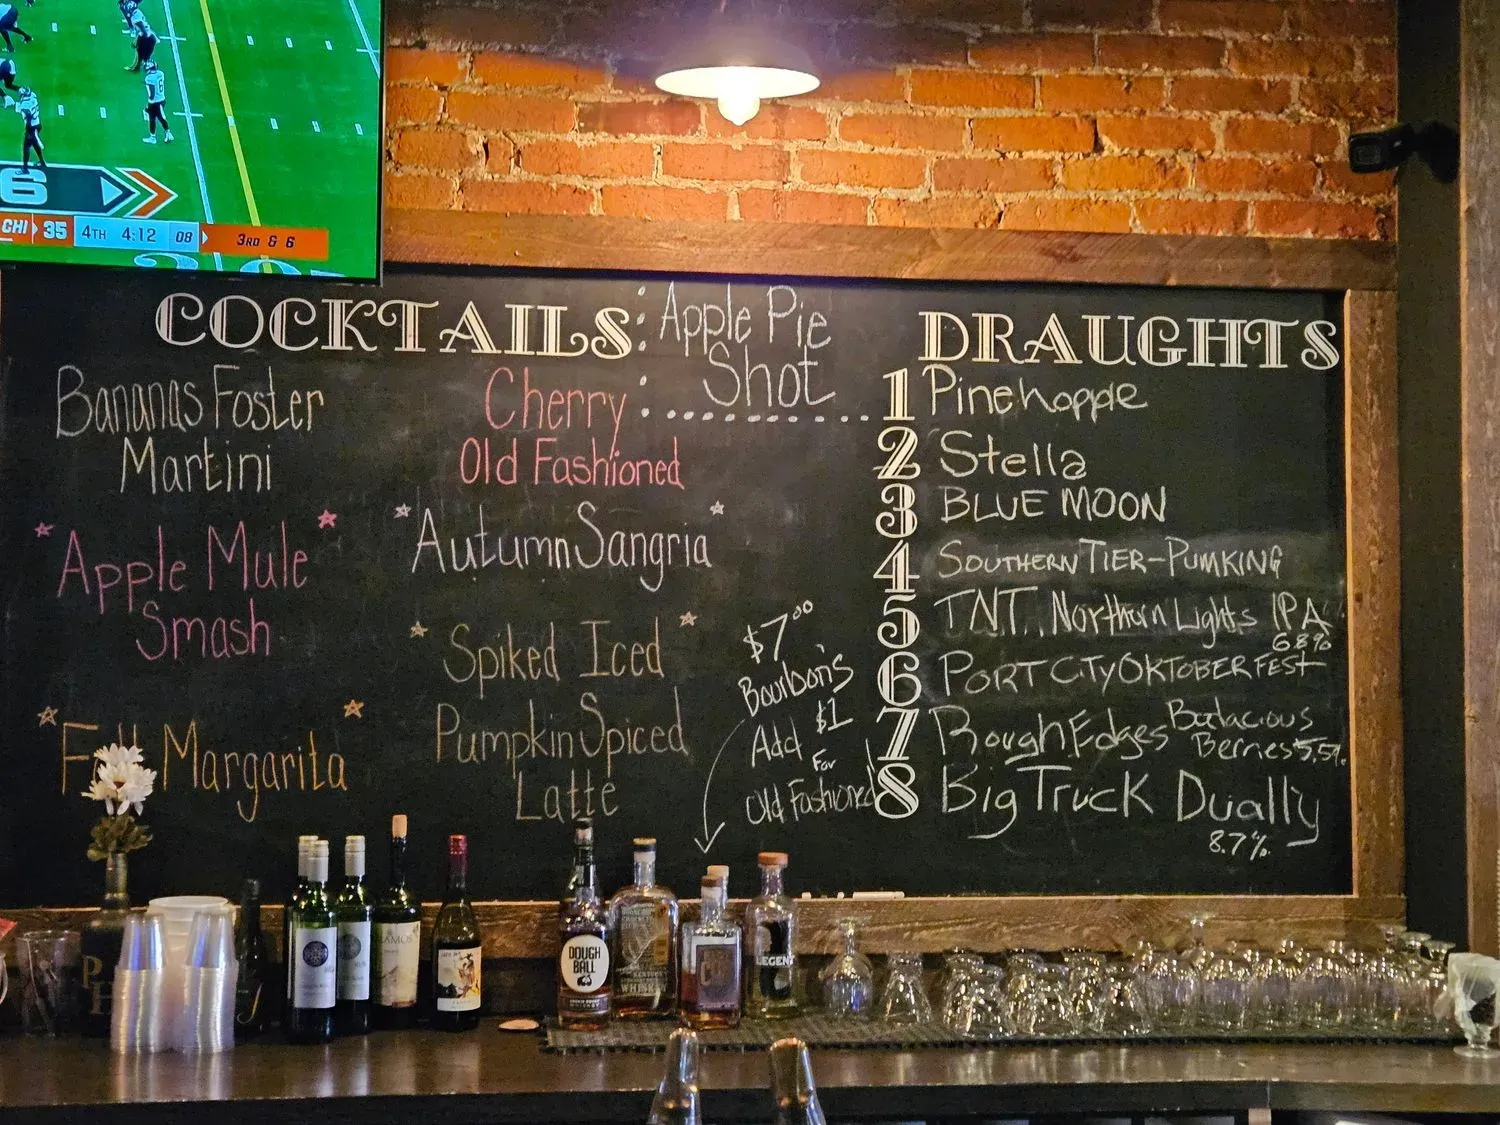 6
CHI 35 4TH 4:12 08 3RD & 6
COCKTAILS
Apple Pie
Shot
Bananas Foster
Martini
Cherry
Old Fashioned
Apple Mule
Smash
Autumn Sangria
Spiked Iced
Pumpkin Spiced
Latte
Margarita
$7.00
Bourbon's
Add $1
For
Old Fashioned
DRAUGHTS
1 Pinehopple
2 Stella
3 BLUE MOON
4 SOUTHERN TIER-PUMKING
5 TNT. Northern Lights IPA
6.8%
6 PORT CITY OKTOBERFEST
7 Rough Edges Bodacious
Berries 5.5%
8 Big Truck Dually
8.7%
DOUGH
BALL
WHISKEY
LEGENT